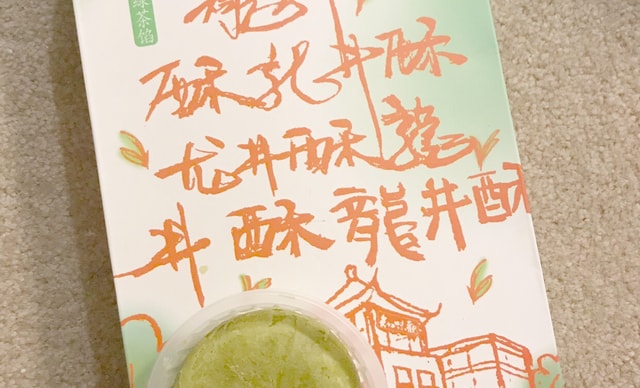 绿茶馅
酥龙井酥
龙井酥龍
井酥龍井酥